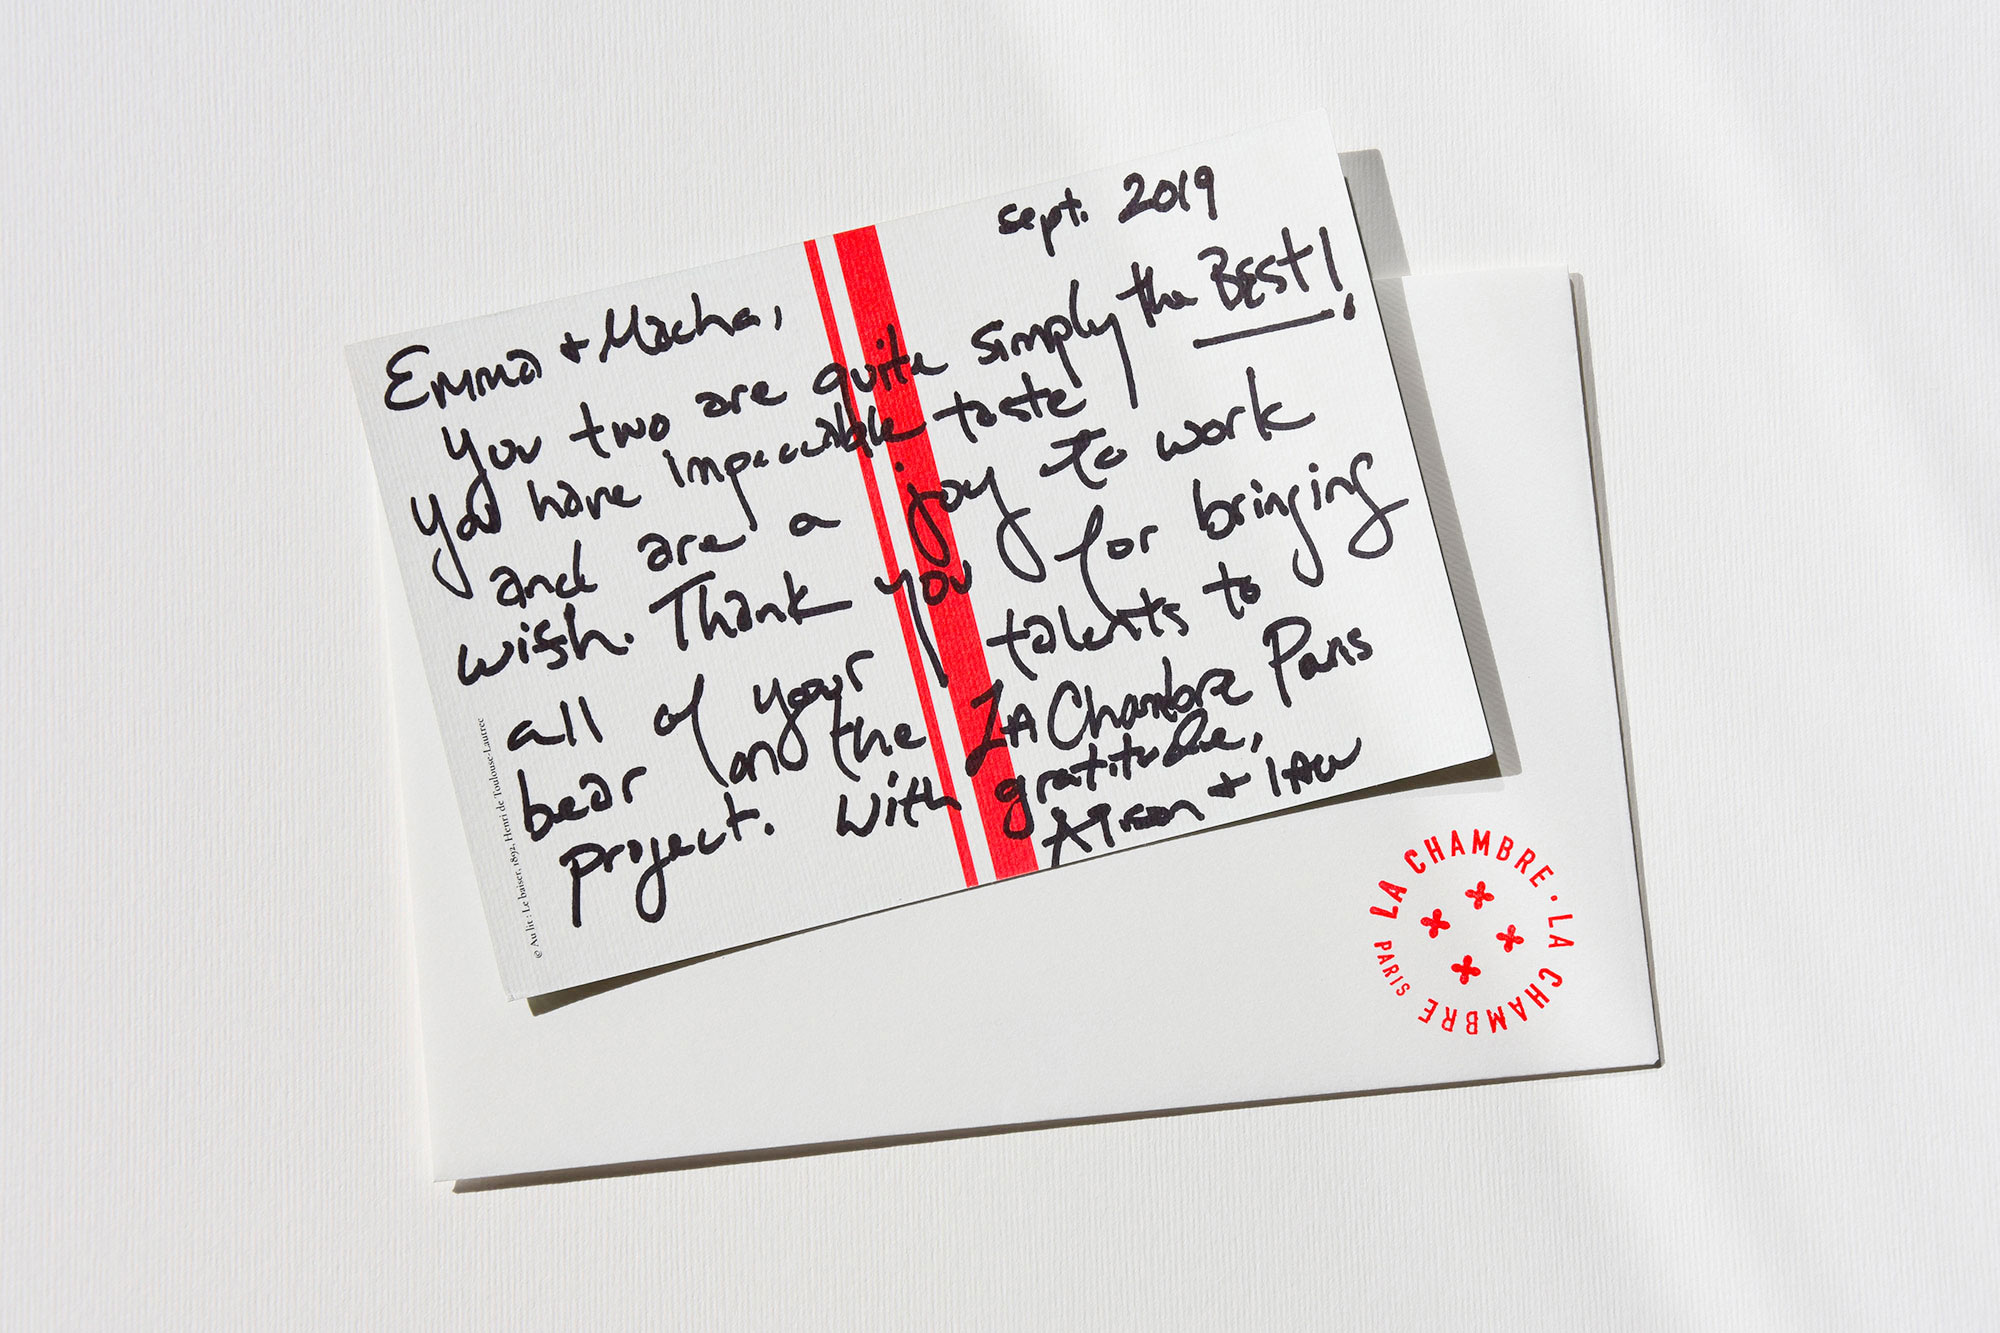 sept. 2019
Emma + Macha,
You two are quite simply the BEST!
You have impeccable taste,
and are a joy to work
wish. Thank you for bringing
all of your talents to
bear on the LA Chambre Paris
project. With gratitude,
Alison + IAN
© Au lit : Le baiser, 1892, Henri de Toulouse-Lautrec
LA CHAMBRE · LA CHAMBRE
PARIS